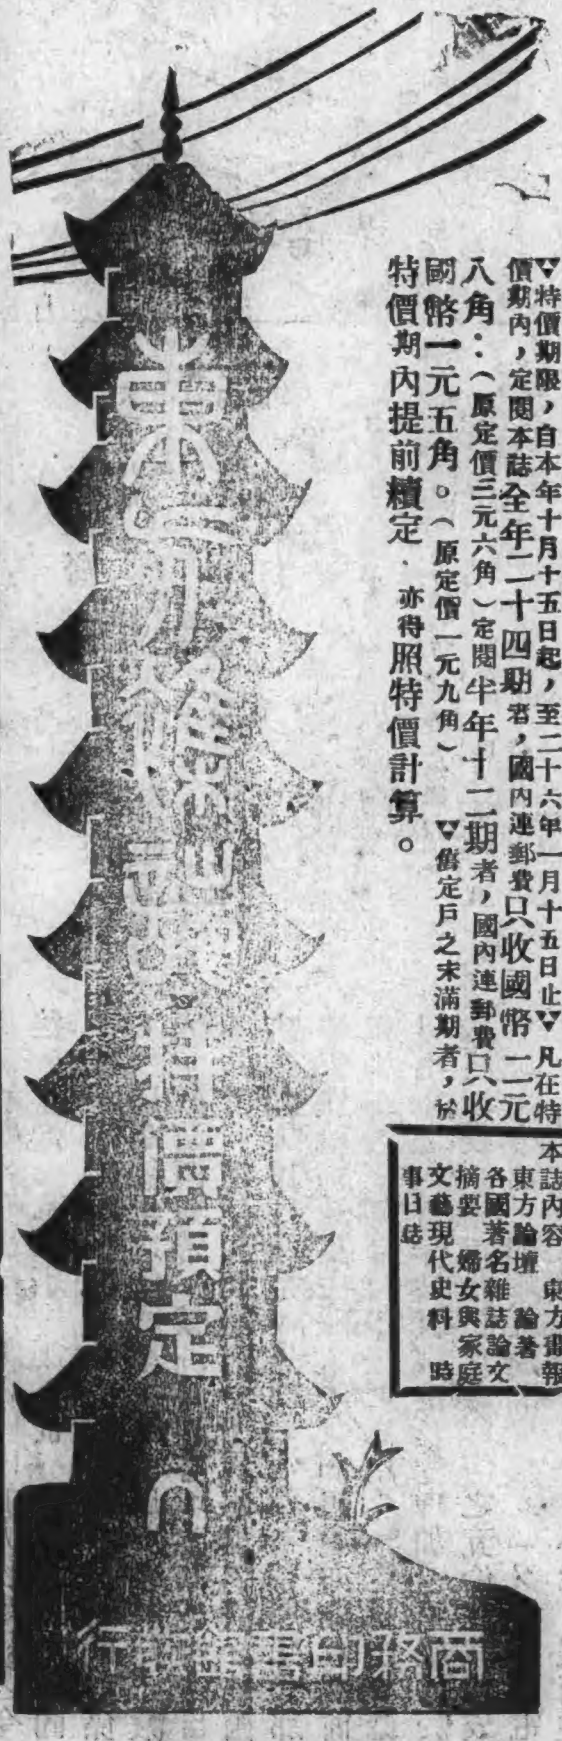 東方雜誌特價預定
▼特價期限，自本年十月十五日起，至二十六年一月十五日止▼凡在特
價期內，定閱本誌全年二十四期者，國內連郵費只收國幣二元
八角：（原定價三元六角）定閱半年十二期者，國內連郵費只收
國幣一元五角。（原定價一元九角）▼舊定戶之未滿期者，於
特價期內提前續定．亦得照特價計算。
本誌內容　東方畫報
東方論壇　論著
各國著名雜誌論文
摘要　婦女與家庭
文藝現代史料　時
事日誌
商務印書館發行